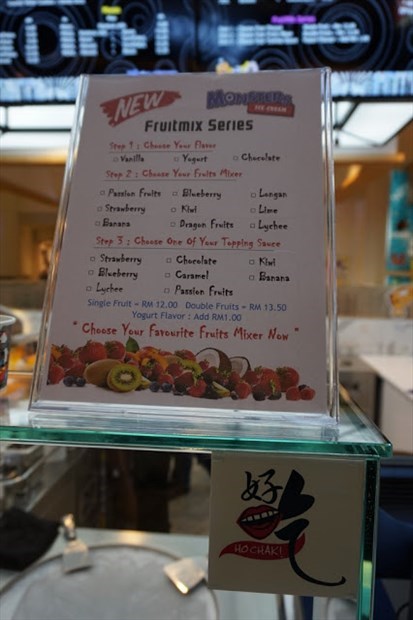 NEW
MONSTERS
ICE CREAM
Fruitmix Series
Step 1 : Choose Your Flavor
□ Vanilla □ Yogurt □ Chocolate
Step 2 : Choose Your Fruits Mixer
□ Passion Fruits □ Blueberry □ Longan
□ Strawberry □ Kiwi □ Lime
□ Banana □ Dragon Fruits □ Lychee
Step 3 : Choose One Of Your Topping Sauce
□ Strawberry □ Chocolate □ Kiwi
□ Blueberry □ Caramel □ Banana
□ Lychee □ Passion Fruits
Single Fruit = RM 12.00 Double Fruits = RM 13.50
Yogurt Flavor : Add RM1.00
" Choose Your Favourite Fruits Mixer Now "
好气
HO CHAK!